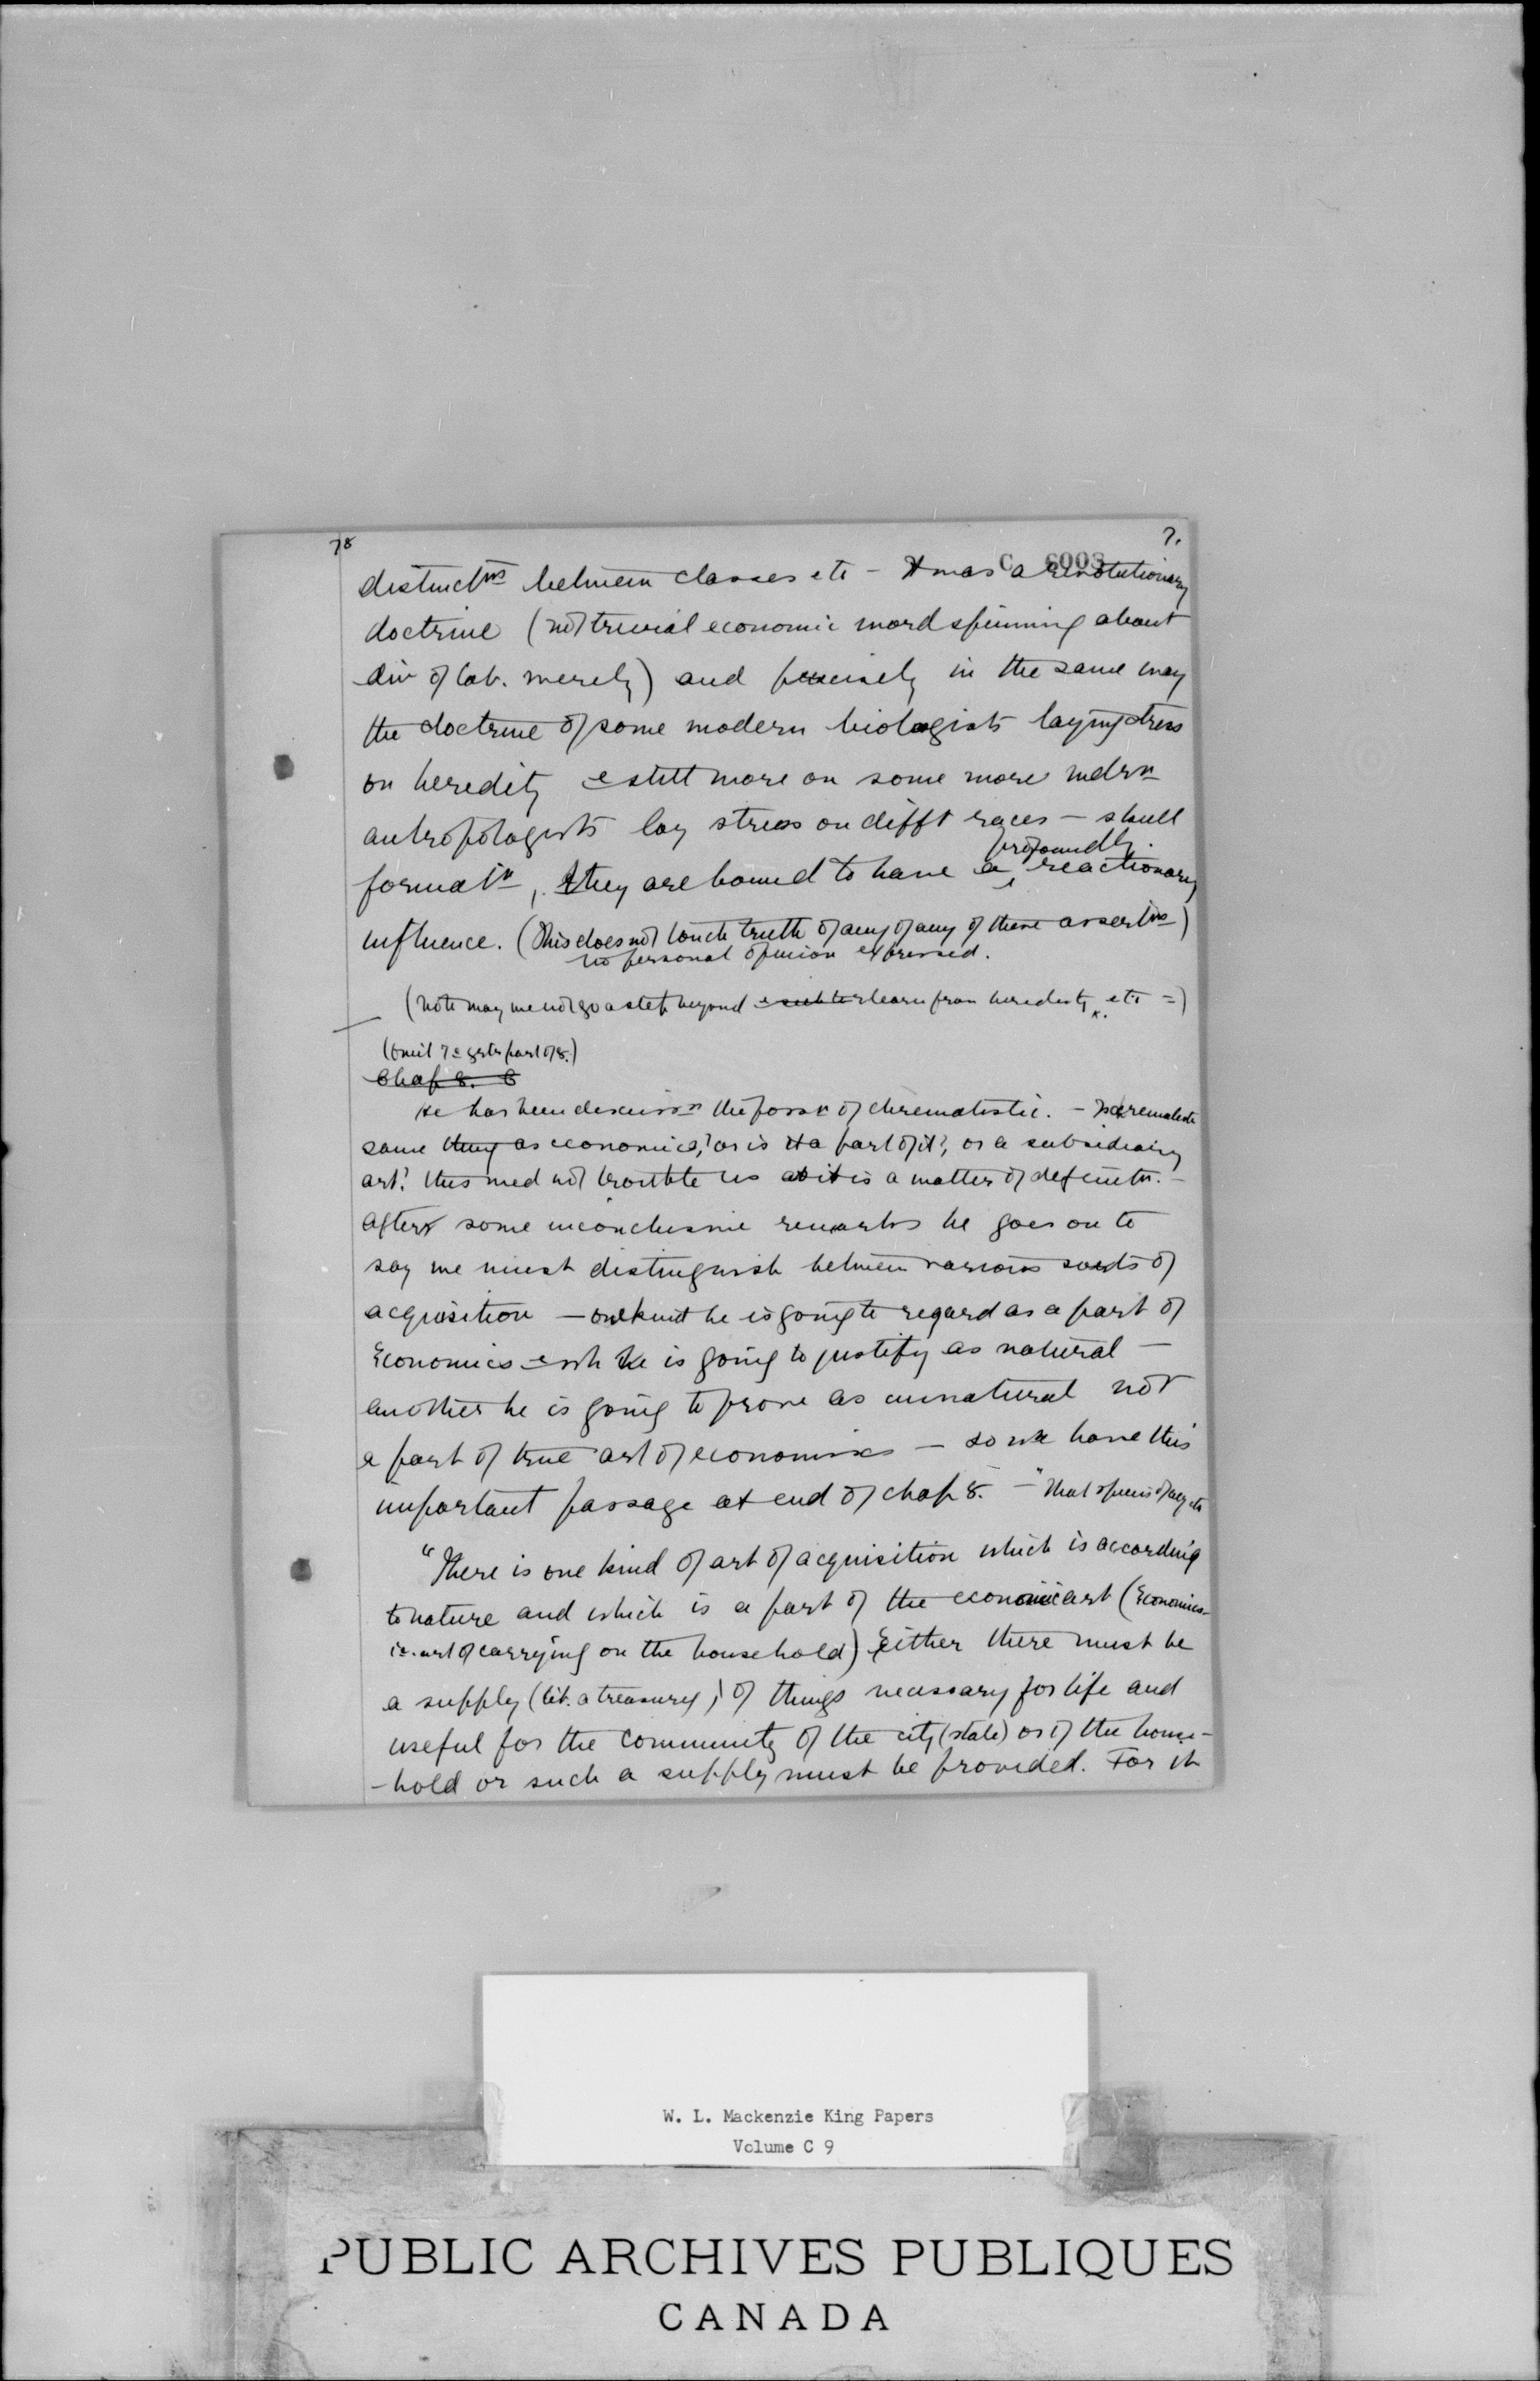 78
7.
C 6003
distinctns between classes etc - It was a revolutionary
doctrine (not trivial economic word spinning about
div of lab. merely) and precisely in the same way
the doctrine of some modern biologists laying stress
on heredity & still more on some more modrn
antropologists lay stress on difft races - skull
formatn, they are bound to have a profoundly reactionary
influence. (This does not touch truth of any of any of these assertns)
no personal opinion expressed.
(note may we not go a step beyond & learn from heredity etc =)
(Omit 7 & grtr part of 8.)
Chap 8.
He has been discussn the form of chrematistic. - Is chrematistic
same thing as economics? or is it a part of it?, or a subsidiary
art? this need not trouble us as it is a matter of definitn. -
After some inconclusive remarks he goes on to
say we must distinguish between various sorts of
acquisition - one kind he is going to regard as a part of
Economics & wh he is going to justify as natural -
another he is going to prove as unnatural not
a part of true art of economics - so we have this
important passage at end of chap 8. - "That species of acq etc
"There is one kind of art of acquisition which is according
to nature and which is a part of the economic art (Economics -
i.e. art of carrying on the household) Either there must be
a supply (lit. a treasury) of things necessary for life and
useful for the community of the city (state) or of the house-
-hold or such a supply must be provided. For it
W. L. Mackenzie King Papers
Volume C 9
PUBLIC ARCHIVES PUBLIQUES
CANADA